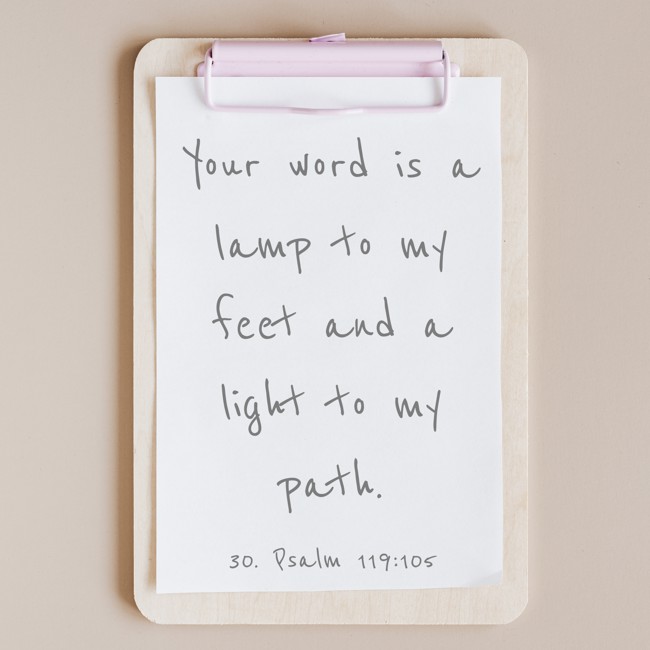 Your word is a
lamp to my
feet and a
light to my
path.
30. Psalm 119:105